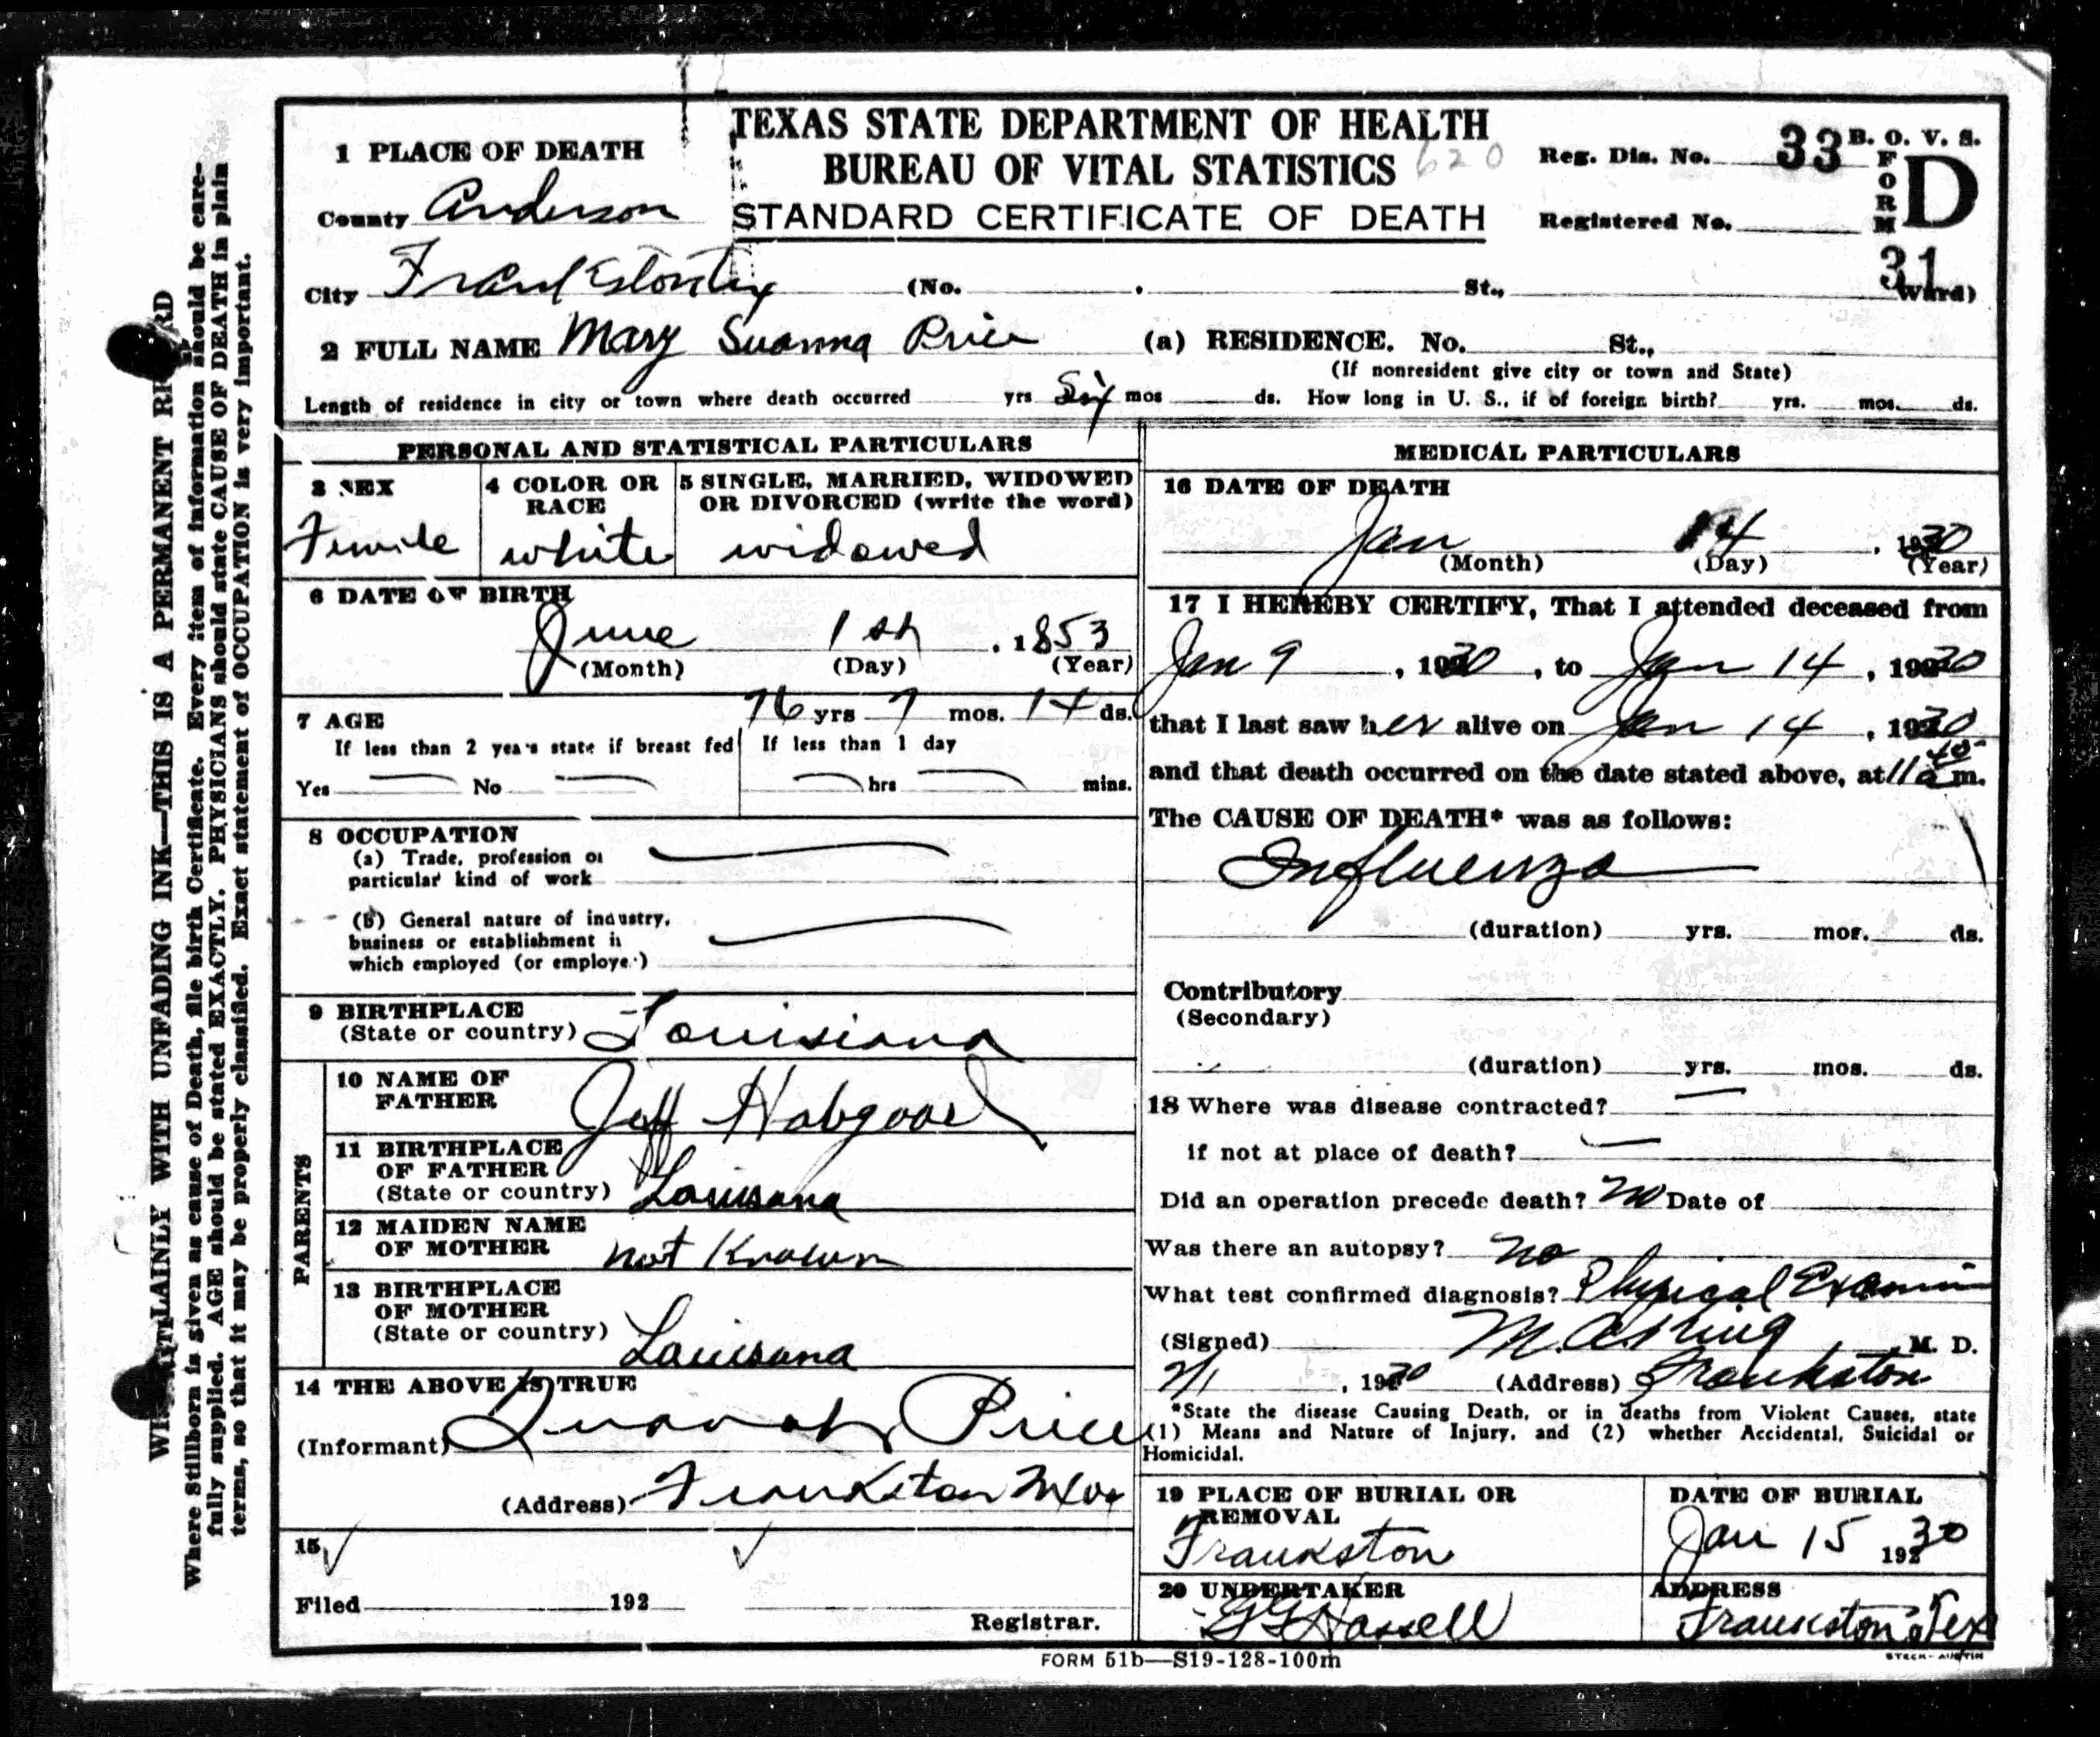 TEXAS STATE DEPARTMENT OF HEALTH
BUREAU OF VITAL STATISTICS
620
STANDARD CERTIFICATE OF DEATH
Reg. Dis. No. 33
B. O. V. S.
FORM D
Registered No.
31
1 PLACE OF DEATH
County Anderson
City Frankston Tex (No. St., Ward)
2 FULL NAME Mary Suanna Price (a) RESIDENCE. No. St.,
(If nonresident give city or town and State)
Length of residence in city or town where death occurred yrs Six mos ds. How long in U. S., if of foreign birth? yrs. mos. ds.
PERSONAL AND STATISTICAL PARTICULARS
3 SEX
Female
4 COLOR OR RACE
white
5 SINGLE, MARRIED, WIDOWED
OR DIVORCED (write the word)
widowed
6 DATE OF BIRTH
June 1st, 1853
(Month) (Day) (Year)
7 AGE 76 yrs 7 mos. 14 ds.
If less than 2 years state if breast fed
If less than 1 day
Yes No
hrs mins.
8 OCCUPATION
(a) Trade, profession or
particular kind of work
(b) General nature of industry,
business or establishment in
which employed (or employer)
9 BIRTHPLACE
(State or country) Louisiana
PARENTS
10 NAME OF
FATHER Jeff Habgood
11 BIRTHPLACE
OF FATHER
(State or country) Louisana
12 MAIDEN NAME
OF MOTHER not Known
13 BIRTHPLACE
OF MOTHER
(State or country) Louisana
14 THE ABOVE IS TRUE
(Informant) Price
(Address) Frankston
15
Filed 192
Registrar.
MEDICAL PARTICULARS
16 DATE OF DEATH
Jan 14, 1930
(Month) (Day) (Year)
17 I HEREBY CERTIFY, That I attended deceased from
Jan 9, 1930, to Jan 14, 1930
that I last saw her alive on Jan 14, 1930
and that death occurred on the date stated above, at 11 45 a m.
The CAUSE OF DEATH* was as follows:
Influenza
(duration) yrs. mos. ds.
Contributory
(Secondary)
(duration) yrs. mos. ds.
18 Where was disease contracted?
if not at place of death?
Did an operation precede death? No Date of
Was there an autopsy? no
What test confirmed diagnosis? Physical Examin
(Signed) M. D.
2/1, 1930 (Address) Frankston
*State the disease Causing Death, or in deaths from Violent Causes, state
(1) Means and Nature of Injury, and (2) whether Accidental, Suicidal or
Homicidal.
19 PLACE OF BURIAL OR
REMOVAL
Frankston
DATE OF BURIAL
Jan 15 1930
20 UNDERTAKER
GG Hassell
ADDRESS
Frankston, Tex
FORM 51b—S19-128-100m
STECK-AUSTIN
WRITE PLAINLY WITH UNFADING INK—THIS IS A PERMANENT RECORD
Where Stillborn is given as cause of Death, file birth Certificate. Every item of information should be care-
fully supplied. AGE should be stated EXACTLY. PHYSICIANS should state CAUSE OF DEATH in plain
terms, so that it may be properly classified. Exact statement of OCCUPATION is very important.